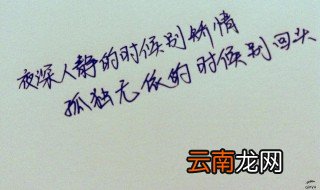 夜深人静的时候别矫情
孤独无依的时候别回头
云南龙网